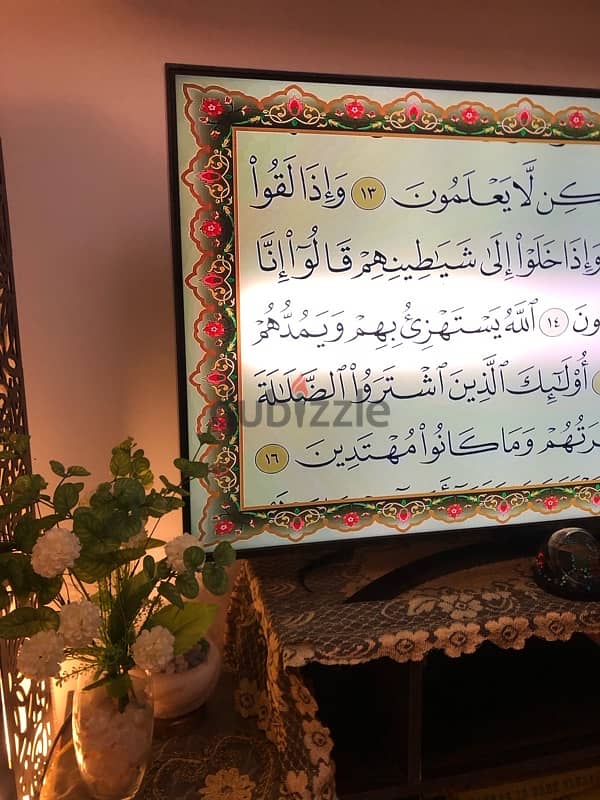 كِن لَّا يَعْلَمُونَ ١٣ وَإِذَا لَقُوا۟
وَإِذَا خَلَوْا۟ إِلَىٰ شَيَـٰطِينِهِمْ قَالُوٓا۟ إِنَّا
ونَ ١٤ ٱللَّهُ يَسْتَهْزِئُ بِهِمْ وَيَمُدُّهُمْ
أُو۟لَـٰٓئِكَ ٱلَّذِينَ ٱشْتَرَوُا۟ ٱلضَّلَـٰلَةَ
dubizzle
رَتُهُمْ وَمَا كَانُوا۟ مُهْتَدِينَ ١٦